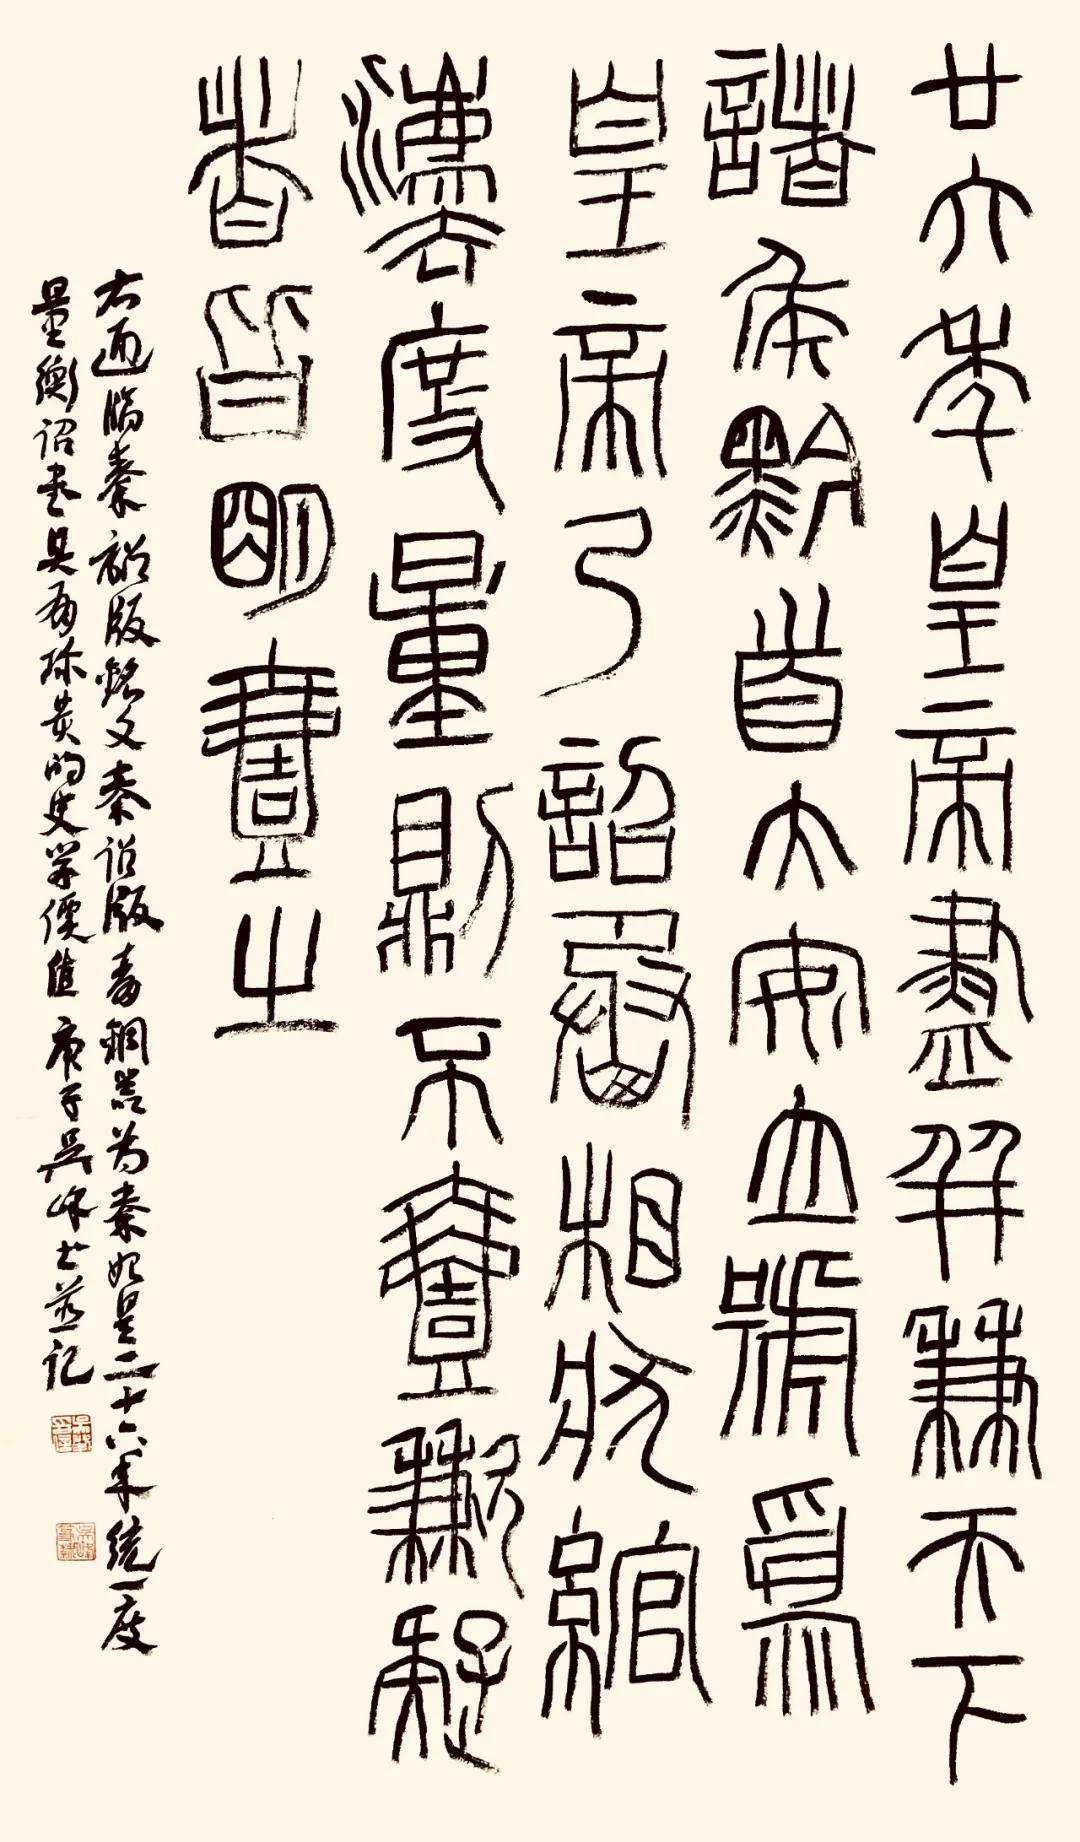 廿六年皇帝盡并兼天下
諸侯黔首大安立號爲
皇帝乃詔丞相狀綰
灋度量則不壹歉疑
者皆明壹之
右臨秦詔版銘文秦詔版青銅器为秦始皇二十六年統一度
量衡詔書具有珍貴的史學價值 庚子吳峰並记